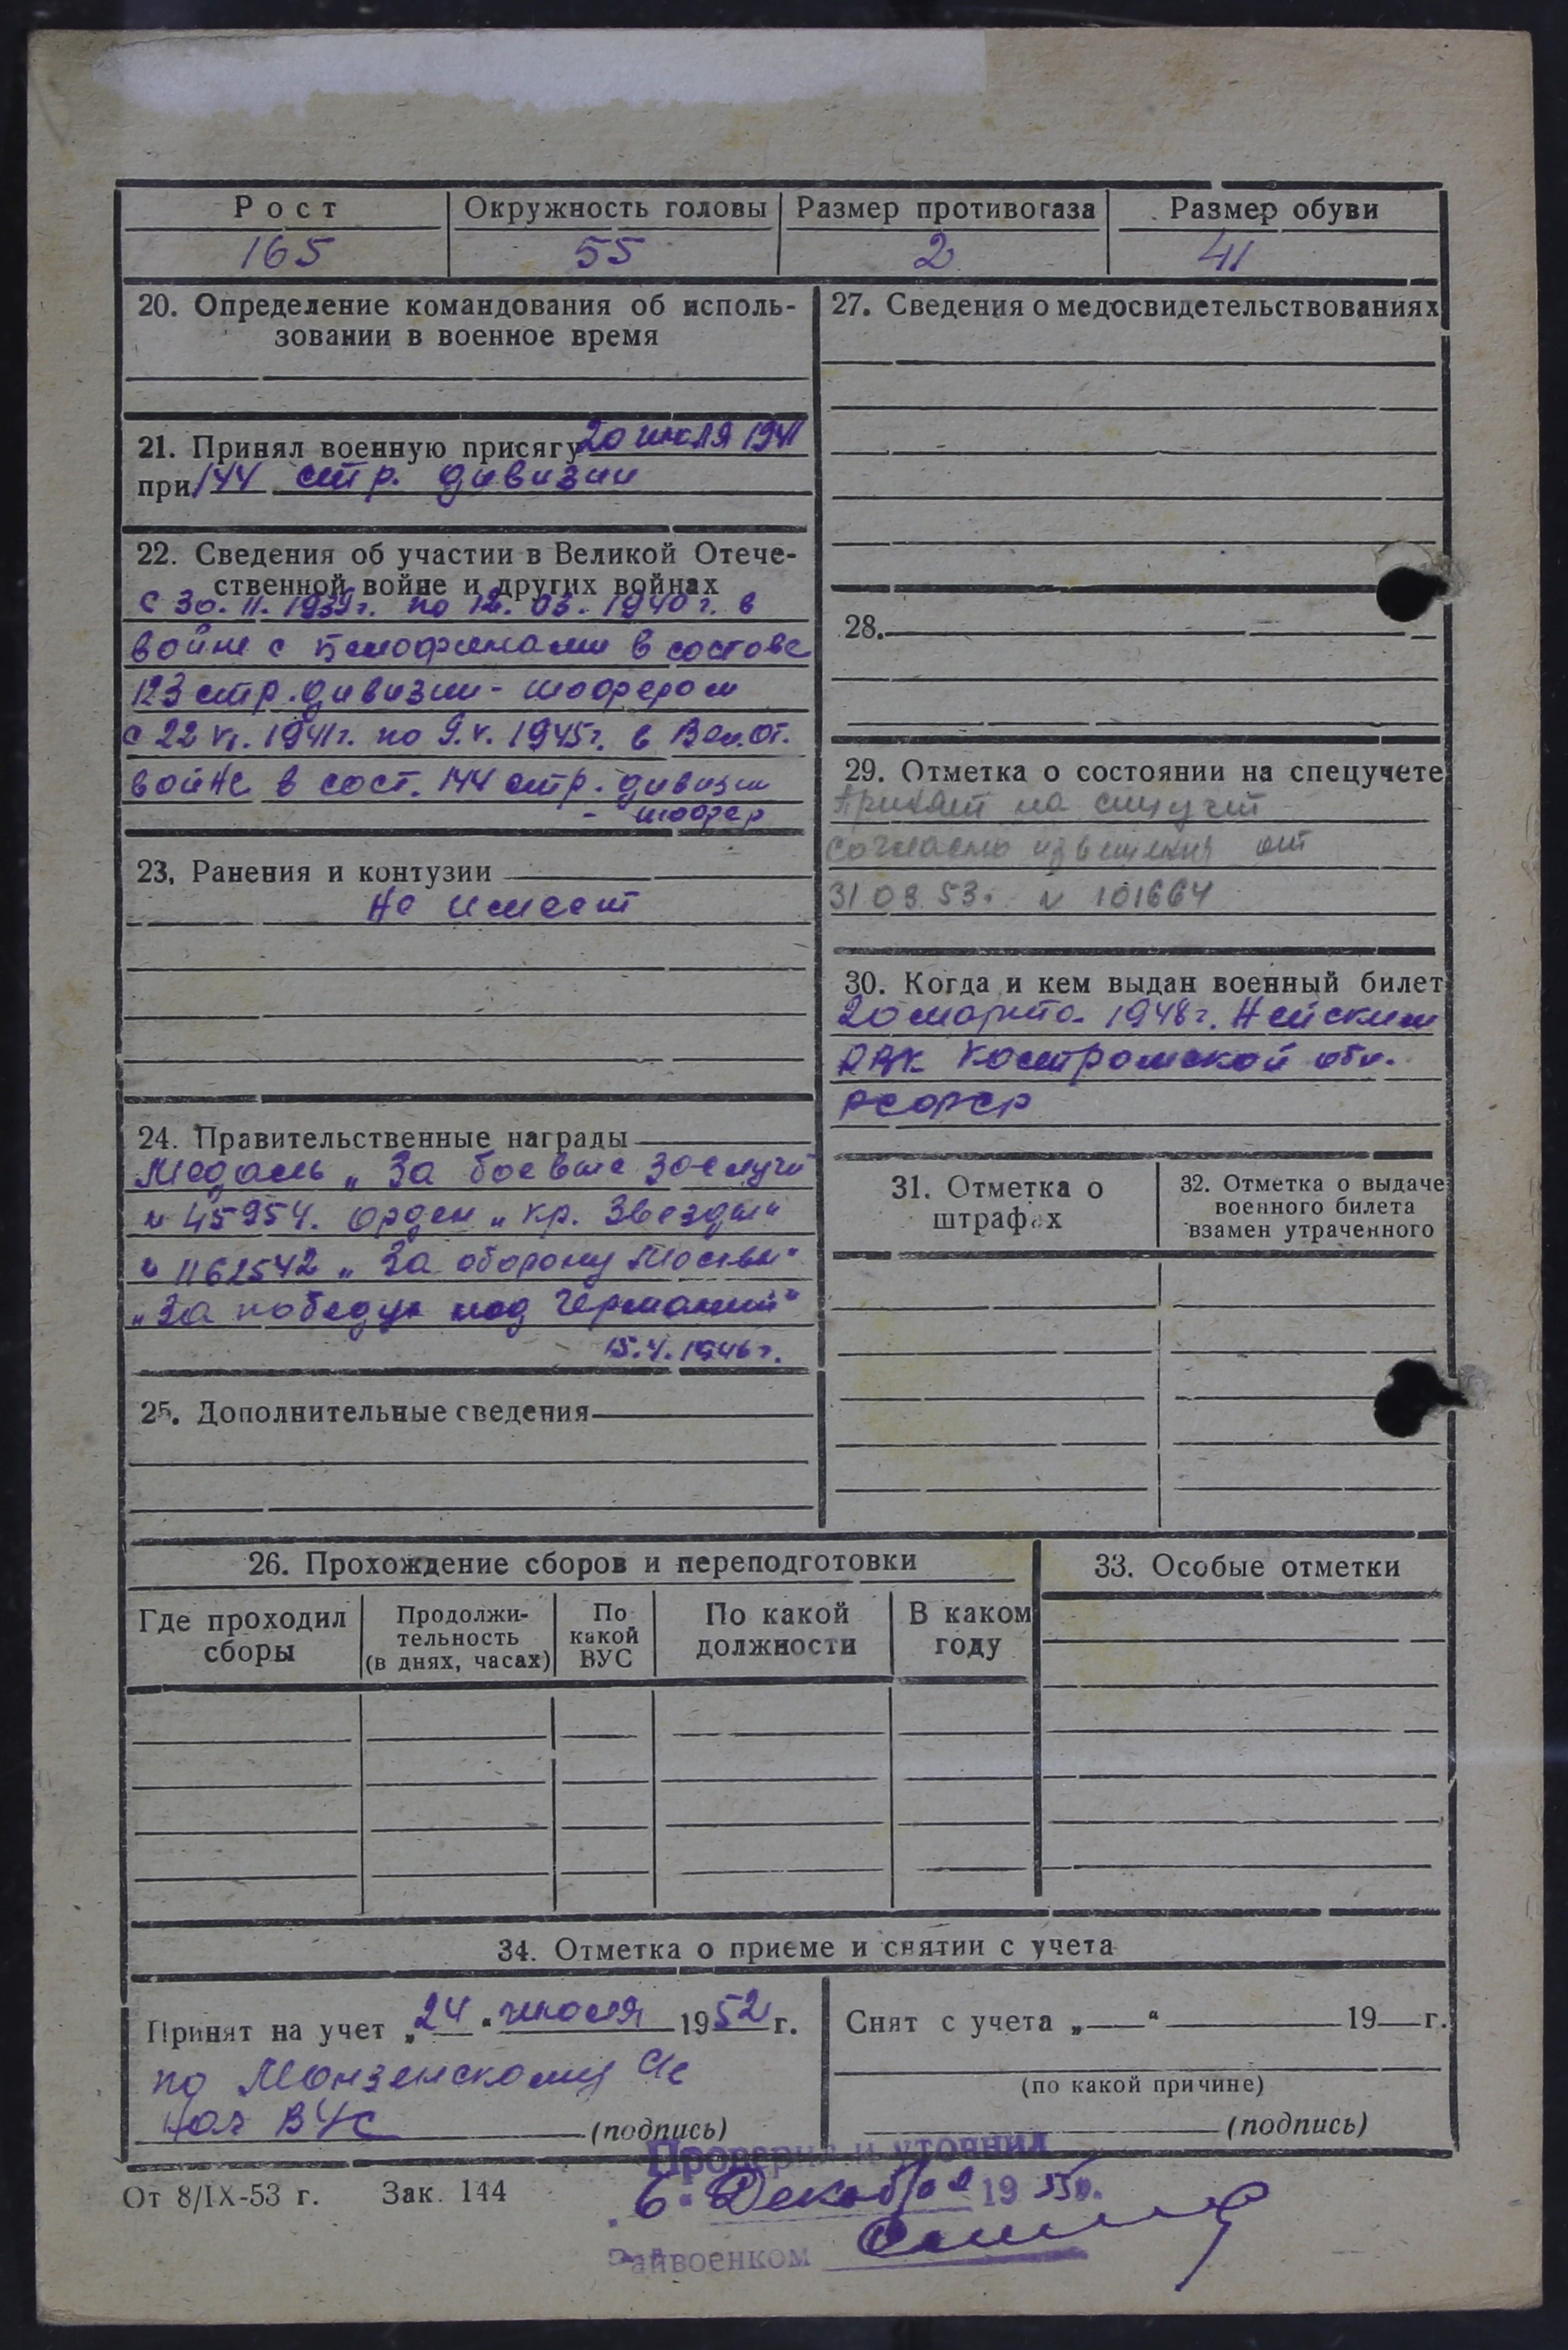 Рост Окружность головы Размер противогаза Размер обуви
165 55 2 41
20. Определение командования об исполь-
зовании в военное время
21. Принял военную присягу 20 июля 1941
при 144 стр. дивизии
22. Сведения об участии в Великой Отече-
ственной войне и других войнах
с 30.11.1939г. по 12.03.1940г. в
войне с белофинами в составе
123 стр. дивизии - шофером
с 22 VI. 1941г. по 9.V.1945г. в Вел.От.
войне в сост. 144 стр. дивизии
- шофер
23. Ранения и контузии
Не имеет
24. Правительственные награды
Медаль „За боевые заслуги"
№ 45954. Орден „Кр. Звезды"
№ 1162542 „За оборону Москвы"
„За победу над Германией"
15.4.1946г.
25. Дополнительные сведения
27. Сведения о медосвидетельствованиях
28.
29. Отметка о состоянии на спецучете
Принят на спецучет
согласно извещения от
31 03 53г. № 101664
30. Когда и кем выдан военный билет
20 марта 1948г. Нейским
РВК Костромской обл.
РСФСР
31. Отметка о
штрафах
32. Отметка о выдаче
военного билета
взамен утраченного
26. Прохождение сборов и переподготовки
Где проходил
сборы
Продолжи-
тельность
(в днях, часах)
По
какой
ВУС
По какой
должности
В каком
году
33. Особые отметки
34. Отметка о приеме и снятии с учета
Принят на учет „24" июля 1952 г.
по Монзенскому
Нач ВУС (подпись)
Снят с учета „ " 19 г.
(по какой причине)
(подпись)
Проверил и уточнил
От 8/IX-53 г. Зак. 144
„6" Декабря 1955г.
Райвоенком